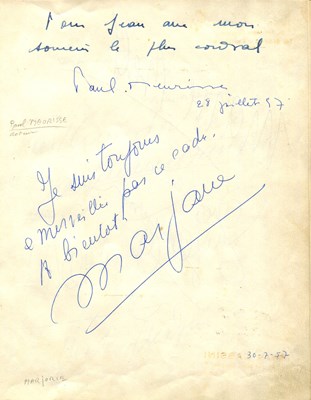 Pour Jean avec mon
souvenir le plus cordial
Paul Meurisse
28 juillet 57
Paul MEURISSE
Je suis toujours
émerveillée par ce cadre.
A bientôt
Marjane
30-7-57